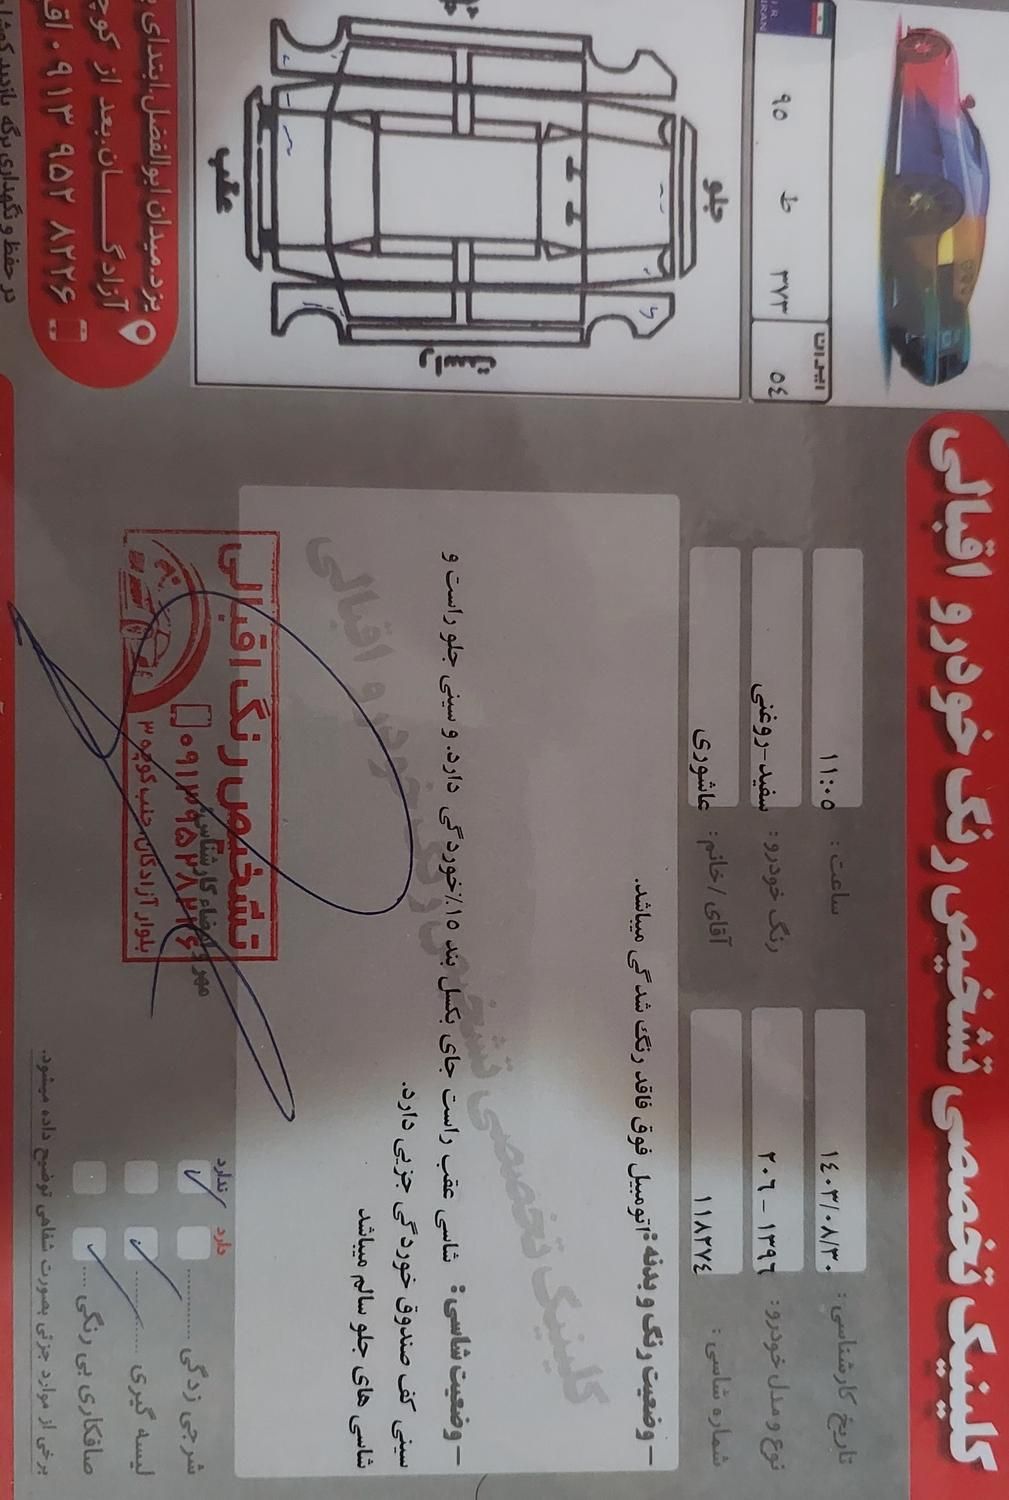 کلینیک تخصصی تشخیص رنگ خودرو اقبالی
I.R.
IRAN
۹۵ ط ۳۷۳
ایران
۵۴
جلو
عقب
راست
تاریخ کارشناسی: ۱۴۰۳/۰۸/۳۰
ساعت: ۱۱:۰۵
نوع و مدل خودرو: ۲۰۶ - ۱۳۹۶
رنگ خودرو: سفید-روغنی
شماره شاسی: ۱۱۸۲۷۴
آقای/خانم: عاشوری
– وضعیت رنگ و بدنه: اتومبیل فوق فاقد رنگ شدگی میباشد.
– وضعیت شاسی: شاسی عقب راست جای بکسل بند ۱۵٪ خوردگی دارد. و سینی جلو راست و
سینی کف صندوق خوردگی جزیی دارد.
شاسی های جلو سالم میباشد
کلینیک تخصصی تشخیص رنگ خودرو اقبالی
ندارد دارد
شرجی زدگی
لیسه گیری
صافکاری بی رنگی
برخی از موارد جزئی بصورت شفاهی توضیح داده میشود.
مهر و امضاء کارشناس
تشخیص رنگ اقبالی
۰۹۱۳۹۵۲۸۲۲۶
بلوار آزادگان جنب کوچه ۳
یزد.میدان ابوالفضل.ابتدای
آزادگــــــان.بعد از
۰۹۱۳ ۹۵۲ ۸۲۲۶
در حفظ و نگهداری برگه بازدید